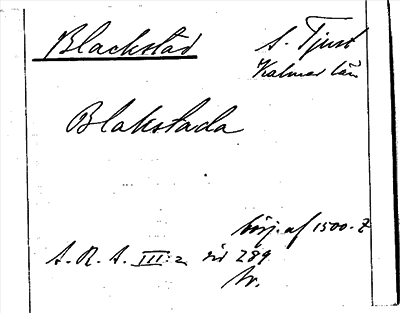 Blackstad
S. Tjust
Kalmar län
Blakstada
börj. af 1500-t
S. R. A. III:2 sid 289